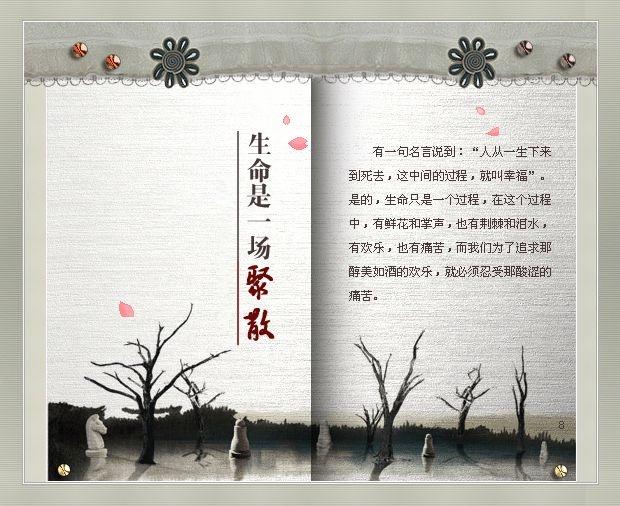 生命是一场聚散
有一句名言说到：“人从一生下来
到死去，这中间的过程，就叫幸福”。
是的，生命只是一个过程，在这个过程
中，有鲜花和掌声，也有荆棘和泪水，
有欢乐，也有痛苦，而我们为了追求那
醇美如酒的欢乐，就必须忍受那酸涩的
痛苦。
8